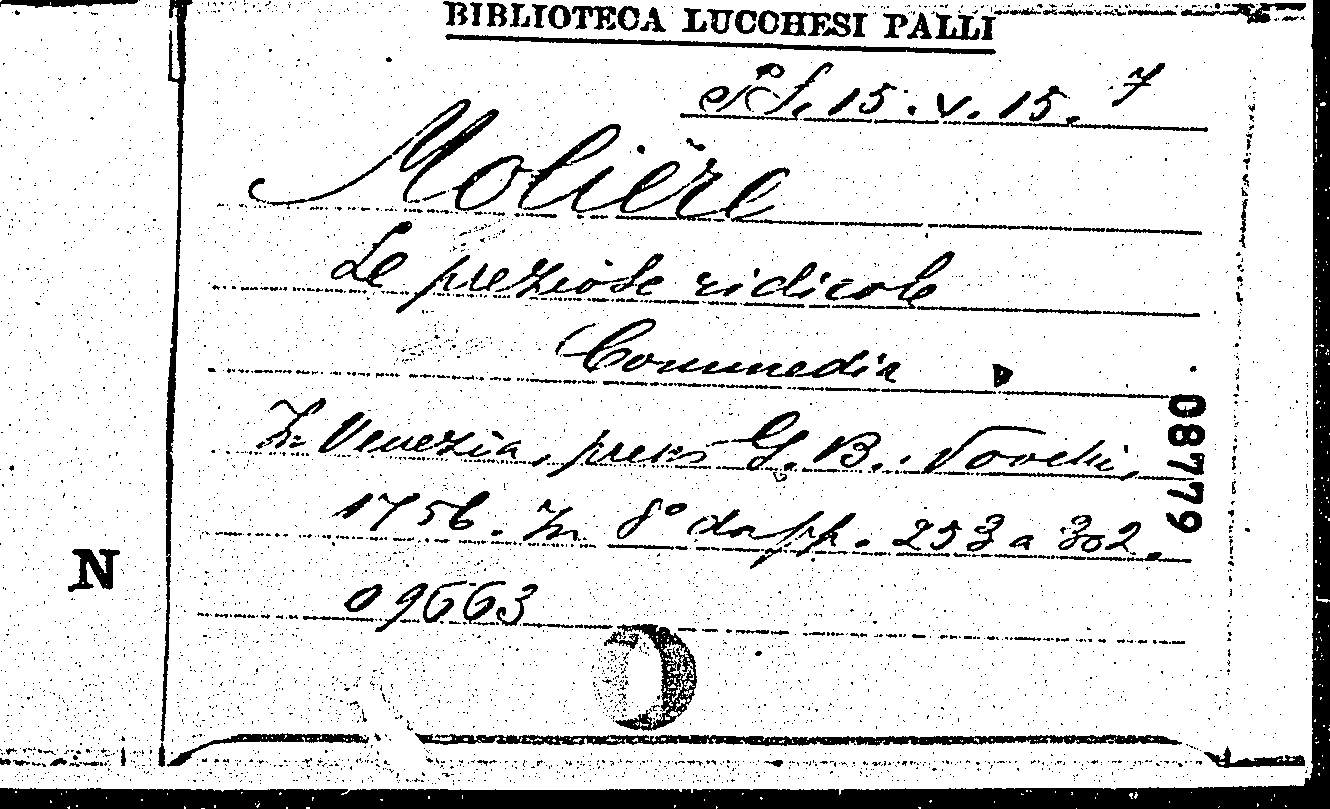 BIBLIOTECA LUCCHESI PALLI
15. V. 15. 7
Molière
Le preziose ridicole
Commedia
In Venezia, presso G. B. Novelli,
1756. In 8° da pp. 253 a 302.
09663
08779
N